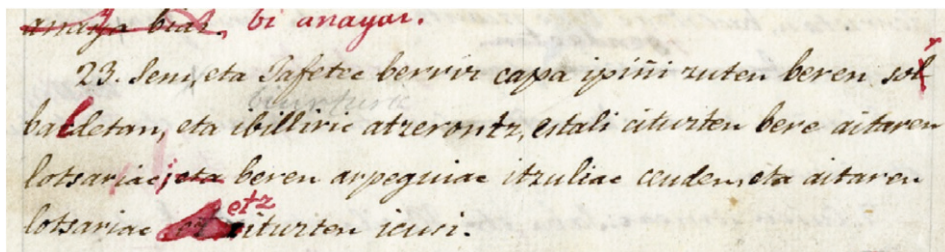 anaya biai, bi anayai.
23. Sem, eta Jafetec berriz capa ipiñi zuten beren sol
baldetan, eta ibilliric atzerontz, estali cituzten bere aitaren
lotsariac; eta beren arpeguiac itzuliac ceuden, eta aitaren
etz
lotsariac cituzten icusi.